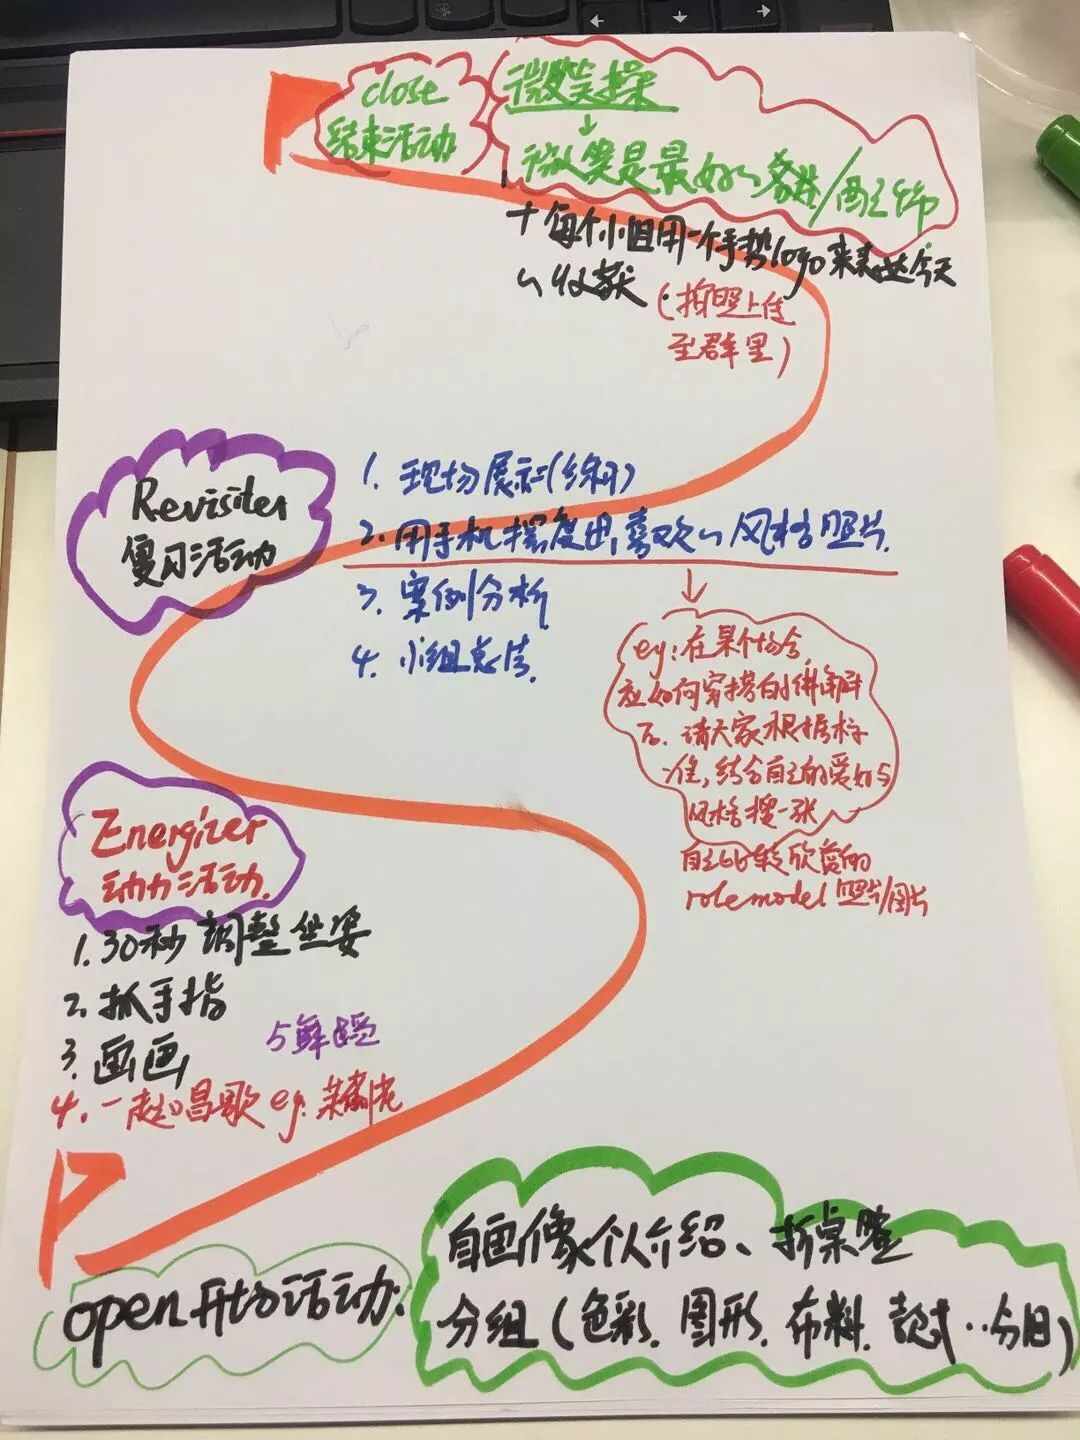 close
结束活动
微笑操
↓
微笑是最好的名片/配饰
+每个小组用一个手势logo来表达今天
的收获
(拍照上传
至群里)
Revisiter
复习活动
1. 现场展示(练习)
2. 用手机搜索出喜欢的风格照片.
3. 案例分析
4. 小组总结.
eg: 在某个场合,
应如何穿搭的讲解
后. 请大家根据标
准, 结合自己的爱好与
风格搜一张
自己比较欣赏的
role model 照片/图片
Energizer
动力活动.
1. 30秒 调整坐姿
2. 抓手指
3. 画画
4. 一起唱歌 eg.
open 开场活动.
自画像个人介绍、折桌签
分组 (色彩. 图形. 布料. 款式..分组)